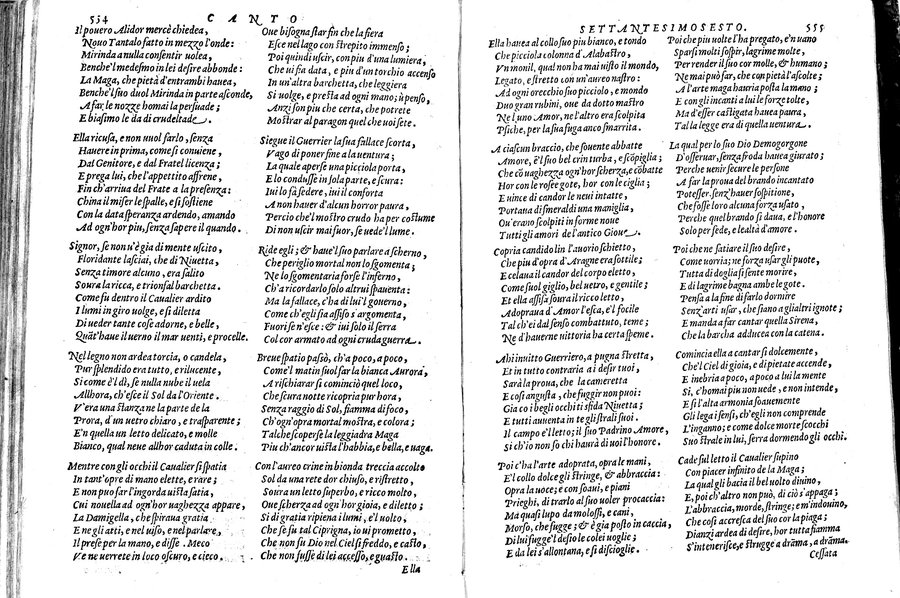 554 CANTO
Il pouero Alidor mercè chiedea,
Nouo Tantalo fatto in mezzo l'onde:
Mirinda a nulla consentir uolea,
Benche'l medesmo in lei desire abbonde:
La Maga, che pietà d'entrambi hauea,
Benche'l suo duol Mirinda in parte asconde,
A far le nozze homai la persuade;
E biasimo le da di crudeltade.
Ella ricusa, e non uuol farlo, senza
Hauere in prima, come si conuiene,
Dal Genitore, e dal Fratel licenza;
E prega lui, che l'appetito affrene,
Fin ch'arriua del Frate a la presenza:
China il miser le spalle, e si sostiene
Con la data speranza ardendo, amando
Ad ogn'hor piu, senza sapere il quando.
Signor, se non u'è gia di mente uscito,
Floridante lasciai, che di Niuetta,
Senza timore alcuno, era salito
Soura la ricca, e trionfal barchetta.
Come fu dentro il Caualier ardito
I lumi in giro uolge, e si diletta
Di ueder tante cose adorne, e belle,
Quāt'haue il uerno il mar uenti, e procelle.
Nel legno non ardea torcia, o candela,
Pur splendido era tutto, e rilucente,
Si come è'l dì, se nulla nube il uela
Allhora, ch'esce il Sol da l'Oriente.
V'era una stanza ne la parte de la
Prora, d'un uetro chiaro, e trasparente;
E'n quella un letto delicato, e molle
Bianco, qual neue allhor caduta in colle.
Mentre con gli occhi il Caualier si spatia
In tant'opre di mano elette, e rare;
E non puo far l'ingorda uista satia,
Cui nouella ad ogn'hor uaghezza appare;
La Damigella, che spiraua gratia
E ne gli atti, e nel uiso, e nel parlare,
Il prese per la mano, e disse. Meco
V e ne uerrete in loco oscuro, e cieco.
Oue bisogna star fin che la fiera
Esce nel lago con strepito immenso;
Poi quindi uscir, con piu d'una lumiera,
Che ui fia data, e piu d'un torchio accenso
In un'altra barchetta, che leggiera
Si uolge, e presta ad ogni mano; ù penso,
Anzi son piu che certa, che potrete
Mostrar al paragon quel che uoi sete.
Siegue il Guerrier la sua fallace scorta,
Vago di poner fine a la uentura;
La quale aperse una picciola porta,
E lo condusse in sola parte, e scura:
Iui lo fà sedere, iui il conforta
A non hauer d'alcun horror paura,
Percio che'l mostro crudo ha per costume
Di non uscir mai fuor, se uede'l lume.
Ride egli; & haue'l suo parlare a scherno,
Che periglio mortal non lo sgomenta;
Ne lo sgomentaria forse l'inferno,
Ch'a ricordarlo solo altrui spauenta:
Ma la fallace, c'ha di lui'l gouerno,
Come ch'egli sia assiso s'argomenta,
Fuori se n'esce: & iui solo il serra
Col cor armato ad ogni cruda guerra.
Breue spatio passò, ch'a poco, a poco,
Come'l matin suol far la bianca Aurora,
A rischiarar si cominciò quel loco,
Che scura notte ricopria pur hora,
Senza raggio di Sol, fiamma di foco,
Ch'ogn'opra mortal mostra, e colora;
Tal che scoperse la leggiadra Maga
Piu ch'ancor uista l'habbia, e bella, e uaga.
Con l'aureo crine in bionda treccia accolto
Sol da una rete dor chiuso, e ristretto,
Soura un letto superbo, e ricco molto,
Oue scherza ad ogn'hor gioia, e diletto;
Si di gratia ripiena i lumi, e'l uolto,
Che se fu tal Ciprigna, io ui prometto,
Che non fu Dio nel Ciel si freddo, e casto,
Che non fusse di lei acceso, e guasto.
Ella
SETTANTESIMOSESTO. 555
Ella hauea al collo suo piu bianco, e tondo
Che picciola colonna d'Alabastro,
Vn monil, qual non ha mai uisto il mondo,
Legato, e stretto con un'aureo nastro:
Ad ogni orecchio suo picciolo, e mondo
Duo gran rubini, oue da dotto mastro
Ne l'uno Amor, ne l'altro era scolpita
Psiche, per la sua fuga anco smarrita.
A ciascun braccio, che souente abbatte
Amore, E'l suo bel crin turba, e scōpiglia;
Che cō uaghezza ogn'hor scherza, e cōbatte
Hor con le rosee gote, hor con le ciglia;
E uince di candor le neui intatte,
Portaua di smeraldi una maniglia,
Ou'erano scolpiti in forme noue
Tutti gli amori de l'antico Gioue.
Copria candido lin l'auorio schietto,
Che piu d'opra d'Aragne era sottile;
E celaua il candor del corpo eletto,
Come suol giglio, bel uetro, e gentile;
Et ella assisa soura il ricco letto,
Adopraua d'Amor l'esca, e'l focile
Tal ch'ei dal senso combattuto, teme;
Ne d'hauerne uittoria ha certa speme.
Ahi inuitto Guerriero, a pugna stretta,
Et in tutto contraria a i desir tuoi,
Sarà la proua, che la cameretta
E cosi angusta, che fuggir non puoi:
Gia co i begli occhi ti sfida Niuetta;
E tutti auenta in te gli strali suoi.
Il campo è'l letto; il suo Padrino Amore,
Si ch'io non so chi haurà di uoi l'honore.
Poi c'ha l'arte adoprata, opra le mani,
E'l collo dolce gli stringe, & abbraccia:
Opra la uoce; e con soaui, e piani
Prieghi, di trarlo al suo uoler procaccia:
Ma quasi lupo da molossi, e cani,
Morso, che fugge; & è gia posto in caccia,
Di lui fugge'l desio le colei uoglie;
E da lei s'allontana, e si discioglie.
Poi che piu uolte l'ha pregato, e'n uano
Sparsi molti sospir, lagrime molte,
Per render il suo cor molle, & humano;
Ne mai può far, che con pietà l'ascolte;
A l'arte maga hauria posta la mano;
E con gli incanti a lui le forze tolte,
Ma d'esser castigata hauea paura,
Tal la legge era di quella uentura.
La qual per lo suo Dio Demogorgone
D'osseruar, senza froda hauea giurato;
Perche uenir secure le persone
A far la proua del brando incantato
Potesser, senz'hauer sospitione,
Che fosse loro alcuna forza usato,
Perche quel brando si daua, e l'honore
Solo per fede, e lealtà d'amore.
Poi che ne satiare il suo desire,
Come uorria; ne forza usar gli puote,
Tutta di doglia si sente morire,
E di lagrime bagna ambe le gote.
Pensa a la fine di farlo dormire
Senz'arti usar, che siano a gli altri ignote;
E manda a far cantar quella Sirena,
Che la barca adducea con la catena.
Comincia ella a cantar si dolcemente,
Che'l Ciel di gioia, e di pietate accende,
E inebria a poco, a poco a lui la mente
Si, c'homai piu non uede, e non intende,
E si l'alta armonia soauemente
Gli lega i sensi, ch'egli non comprende
L'inganno; e come dolce morte scocchi
Suo strale in lui, serra dormendo gli occhi.
Cade sul letto il Caualier supino
Con piacer infinito de la Maga;
La qual gli bacia il bel uolto diuino,
E, poi ch'altro non può, di ciò s'appaga;
L'abbraccia, morde, stringe; e m'indouino,
Che cosi accresca del suo cor la piaga;
Dianzi ardea di desire, hor tutta fiamma
S'intenerisce, e strugge a drāma, a drāma.
Cessata